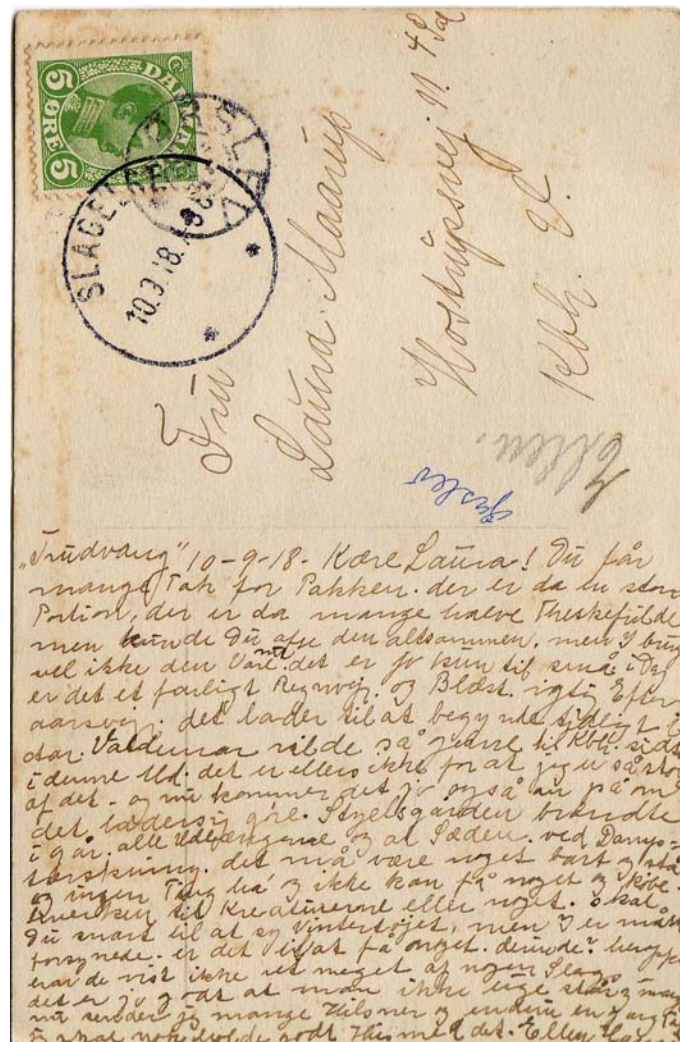 DANMARK
5 ØRE 5
SLAGELSE
10.9.18.
Fru
Laura Maarup
Hostrupsvej N. 4 Sal
Kbh. V.
Ellen.
"Trudvang" 10-9-18- Kære Laura! Du får
mange Tak for Pakken. der er da en stor
Portion, der er da mange halve Theskefulde
men kunde Du afse den altsammen. men I
vel ikke den Vare nu. det er jo kun til små. i Dag
er det et farligt Regnvejr. og Blæst. rigtig Efter
aarsvejr. det lader til at begynde tidligt i
Aar. Valdemar vilde så gerne til Kbh. sidst
i denne Md. det er ellers ikke for at jeg er så stor
af det - og nu kommer det jo også an på om
det lader sig gøre. brændte
i går. alle Udlængerne og al Sæden. ved Damp=
tærskning. det må være noget hart og stå
og ingen Ting ha' og ikke kan få noget og købe.
hverken til Kreaturerne eller noget. skal
Du snart til at sy Vintertøjet, men I er
forsynede. er det til at få noget. derinde?
er de vist ikke ret meget af nogen Slags
det er jo godt at man ikke
nu sender jeg mange Hilsner og endnu en Gang
godt med det. Ellen